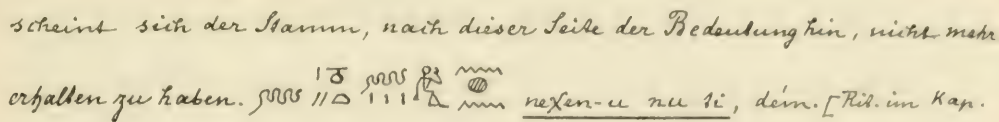 scheint sich der Stamm, nach dieser Seite der Bedeutung hin, nicht mehr
erhalten zu haben. neχen-u nu ti, dém. [Rit. im Kap.